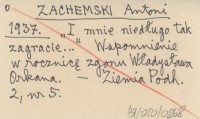 ZACHEMSKI Antoni
1937. „I mnie niedługo tak
zagracie..." Wspomnienie
w rocznicę zgonu Władysława
Orkana. — Ziemia Podh.
2, nr 5.